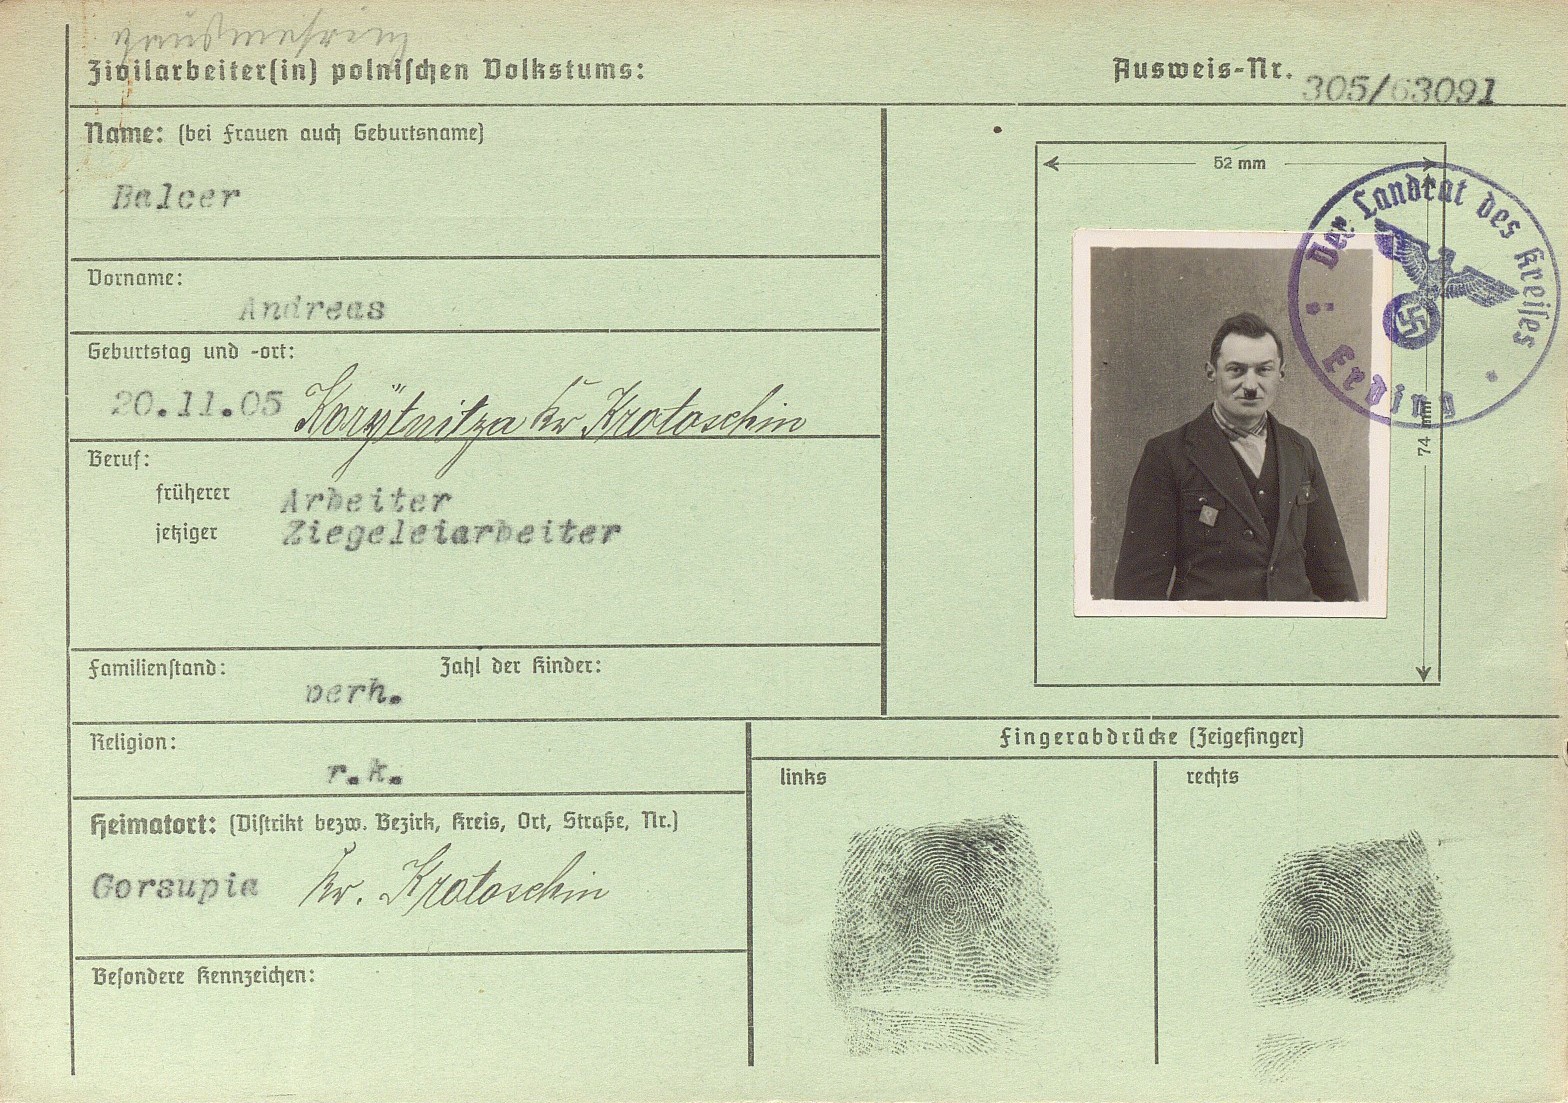 Zivilarbeiter(in) polnischen Volkstums:
Ausweis-Nr. 305/63091
Name: (bei Frauen auch Geburtsname)
Balcer
Vorname:
Andreas
Geburtstag und -ort:
20.11.05 Korÿtnitza Kr Krotoschin
Beruf:
früherer Arbeiter
jetziger Ziegeleiarbeiter
Familienstand: Zahl der Kinder:
verh.
Religion:
r.k.
Heimatort: (Distrikt bezw. Bezirk, Kreis, Ort, Straße, Nr.)
Gorsupia Kr. Krotoschin
Besondere Kennzeichen:
52 mm
74 mm
Der Landrat des Kreises
Erding
Fingerabdrücke (Zeigefinger)
links
rechts